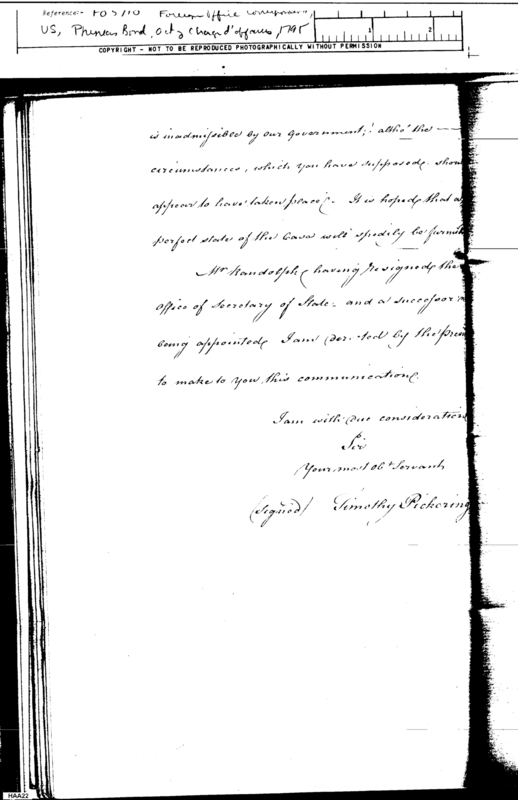 Reference:- FO 5/10 Foreign Office Correspondence,
US, Phineas Bond, Actg Chargé d'affaires, 1795
1 2
COPYRIGHT - NOT TO BE REPRODUCED PHOTOGRAPHICALLY WITHOUT PERMISSION
is inadmissible by our Government; altho' the
circumstances, which you have supposed shou
appear to have taken place. It is hoped that a
perfect state of the Case will speedily be furnish
Mr Randolph having resigned the
office of Secretary of State, and a successor n
being appointed I am directed by the Presi
to make to you this communication.
I am with due consideration
Sir
Your most obt Servant
(Signed) Timothy Pickering
HAA22